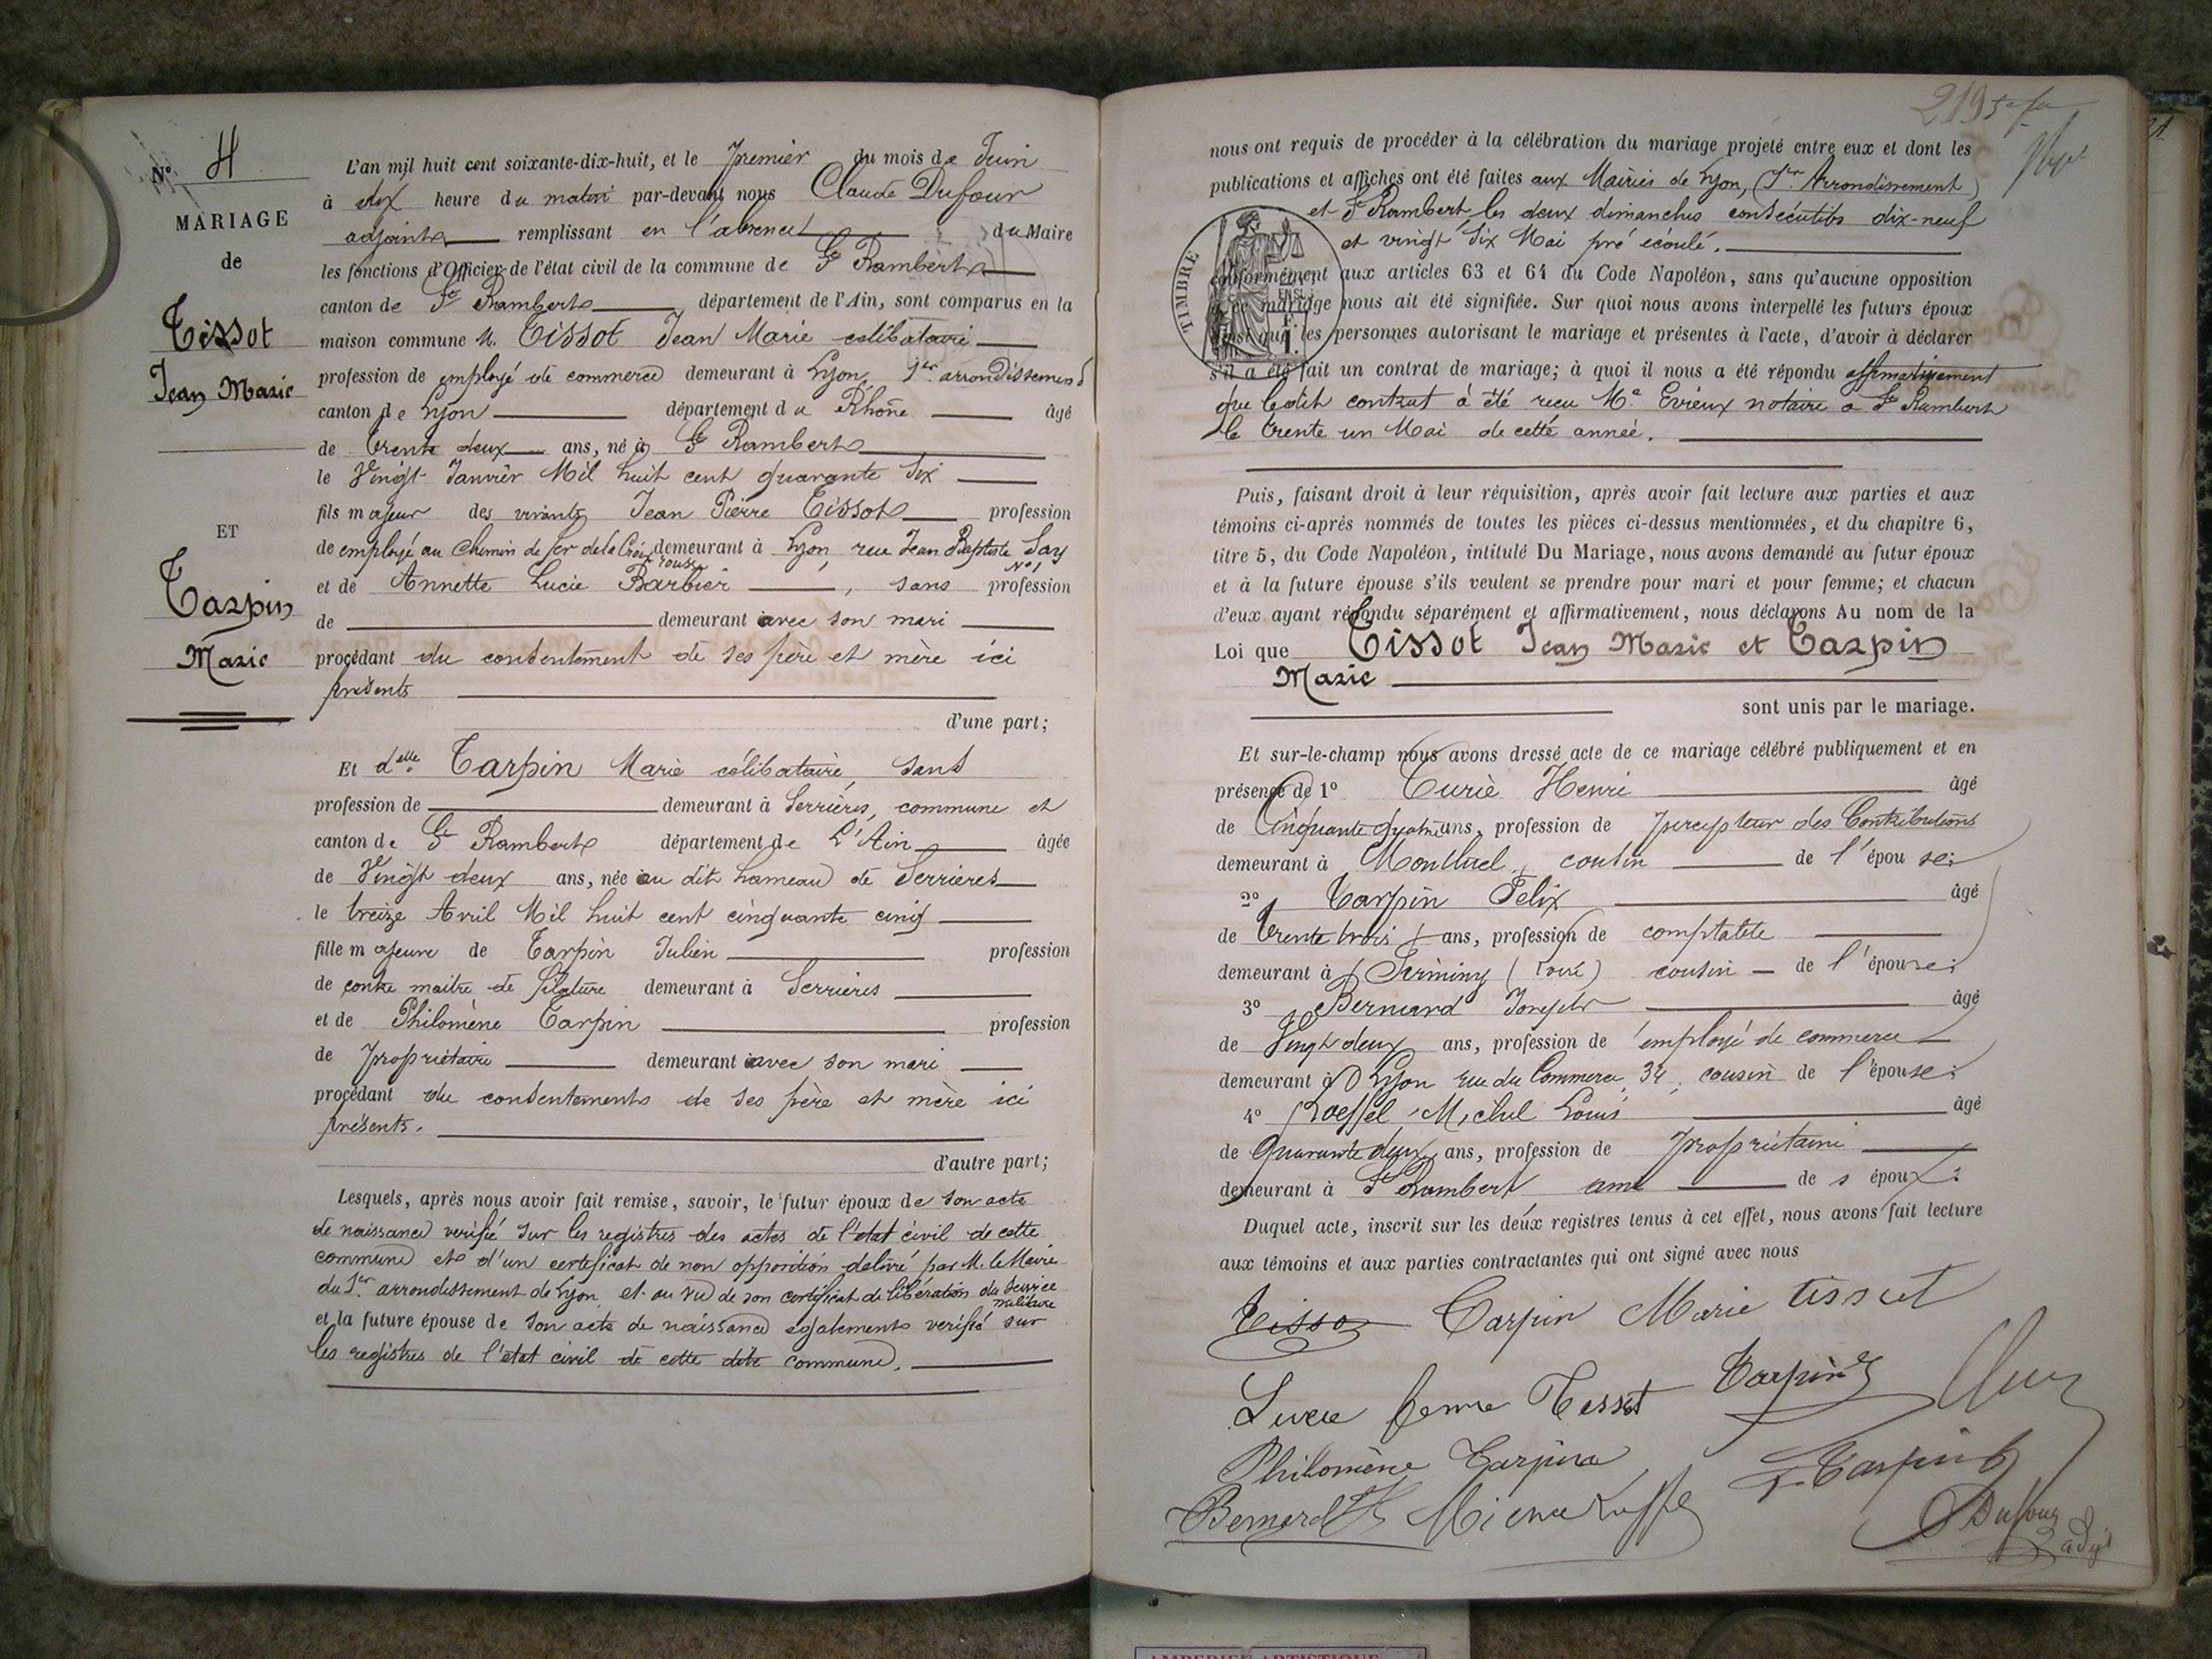 N° 4
MARIAGE
de
Tissot
Jean Marie
ET
Tarpin
Marie
L'an mil huit cent soixante-dix-huit, et le premier du mois de Juin
à dix heure du matin par-devant nous Claude Dufour
adjoint remplissant en l'absence du Maire
les fonctions d'Officier de l'état civil de la commune de St Rambert
canton de St Rambert département de l'Ain, sont comparus en la
maison commune M. Tissot Jean Marie célibataire
profession de employé de commerce demeurant à Lyon, 1er arrondissement
canton de Lyon département du Rhône âgé
de trente deux ans, né à St Rambert
le Vingt Janvier Mil huit cent quarante Six
fils majeur des vivants Jean Pierre Tissot profession
de employé au Chemin de fer de la Croix rousse demeurant à Lyon, rue Jean Baptiste Say N° 1
et de Annette Lucie Barbier, sans profession
de demeurant avec son mari
procédant du consentement de ses père et mère ici
présents
d'une part;
Et delle Tarpin Marie célibataire, sans
profession de demeurant à Serrières, commune et
canton de St Rambert département de L'Ain âgée
de Vingt deux ans, née au dit hameau de Serrieres
le treize Avril Mil huit cent cinquante cinq
fille majeure de Tarpin Julien profession
de contre maitre de filature demeurant à Serrieres
et de Philomène Tarpin profession
de propriétaire demeurant avec son mari
procédant du consentement de ses père et mère ici
présents.
d'autre part;
Lesquels, après nous avoir fait remise, savoir, le futur époux de son acte
de naissance verifié sur les registres des actes de l'état civil de cette
commune et d'un certificat de non opposition délivré par M. le Maire
du 1er arrondissement de Lyon, et au vu de son certificat de libération du service militaire
et la future épouse de son acte de naissance egalement verifié sur
les registres de l'etat civil de cette dite commune.
219
nous ont requis de procéder à la célébration du mariage projeté entre eux et dont les
publications et affiches ont été faites aux Mairies de Lyon, (1er Arrondissement)
et St Rambert les deux dimanches consécutifs dix-neuf
et vingt Six Mai pré écoulé.
TIMBRE
conformément aux articles 63 et 64 du Code Napoléon, sans qu'aucune opposition
à ce mariage nous ait été signifiée. Sur quoi nous avons interpellé les futurs époux
ainsi que les personnes autorisant le mariage et présentes à l'acte, d'avoir à déclarer
s'il a été fait un contrat de mariage; à quoi il nous a été répondu affirmativement
que ledit contrat a été recu Me Evieux notaire a St Rambert
le trente un Mai de cette année.
Puis, faisant droit à leur réquisition, après avoir fait lecture aux parties et aux
témoins ci-après nommés de toutes les pièces ci-dessus mentionnées, et du chapitre 6,
titre 5, du Code Napoléon, intitulé Du Mariage, nous avons demandé au futur époux
et à la future épouse s'ils veulent se prendre pour mari et pour femme; et chacun
d'eux ayant répondu séparément et affirmativement, nous déclarons Au nom de la
Loi que Tissot Jean Marie et Tarpin
Marie
sont unis par le mariage.
Et sur-le-champ nous avons dressé acte de ce mariage célébré publiquement et en
présence de 1° Curiè Henri âgé
de Cinquante quatre ans, profession de percepteur des Contributions
demeurant à Montluel, cousin de l'épouse;
2° Tarpin Felix âgé
de trente trois ans, profession de comptable
demeurant à Firminy (Loire) cousin de l'épouse;
3° Bernard Joseph âgé
de Vingt deux ans, profession de employé de commerce
demeurant à Lyon rue du Commerce, 34, cousin de l'épouse;
4° Michel Louis âgé
de Quarante deux ans, profession de propriétaire
demeurant à St Rambert ami des époux:
Duquel acte, inscrit sur les deux registres tenus à cet effet, nous avons fait lecture
aux témoins et aux parties contractantes qui ont signé avec nous
Tissot Tarpin Marie tissot
Lucie femme Tissot Tarpin
Philomène Tarpin F. Tarpin
Bernard
Dufour adjt
AMBERIEU ARTISTIQUE